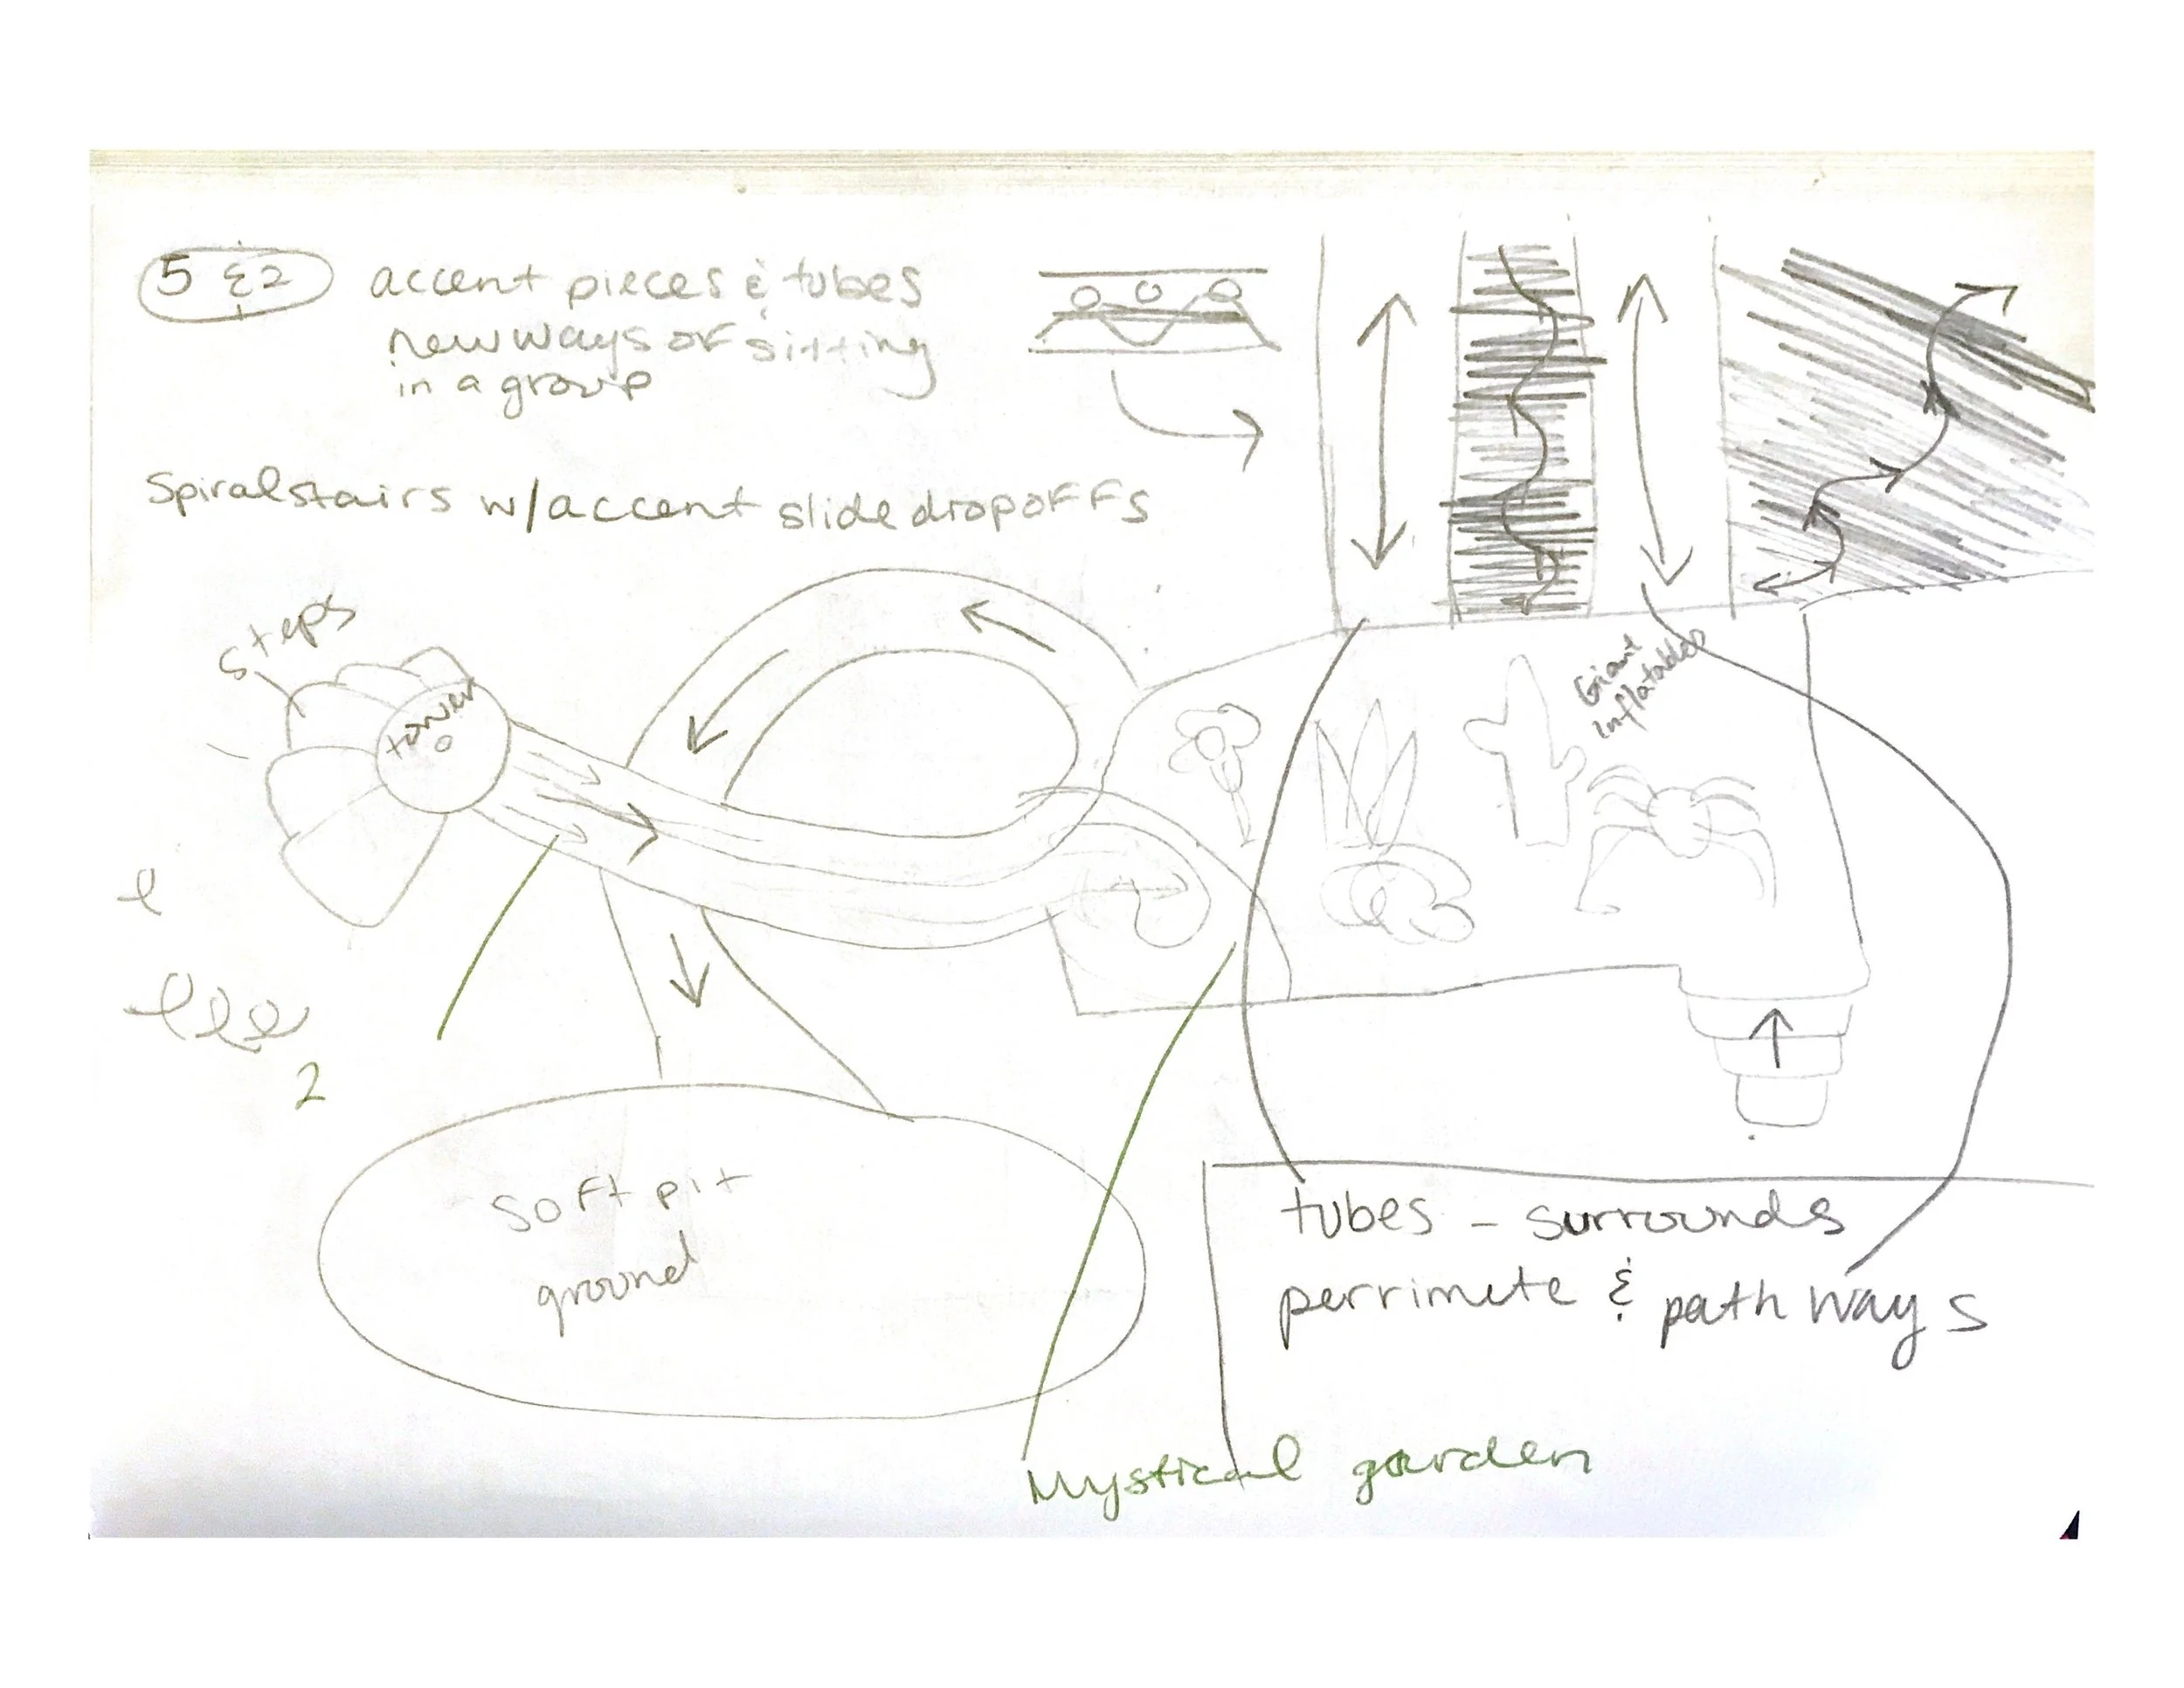 5 & 2 accent pieces & tubes
new ways of sitting
in a group
Spiral stairs w/ accent slide dropoffs
steps
tower
Giant
inflatables
2
soft pit
ground
tubes - surrounds
perrimete & path ways
Mystical garden